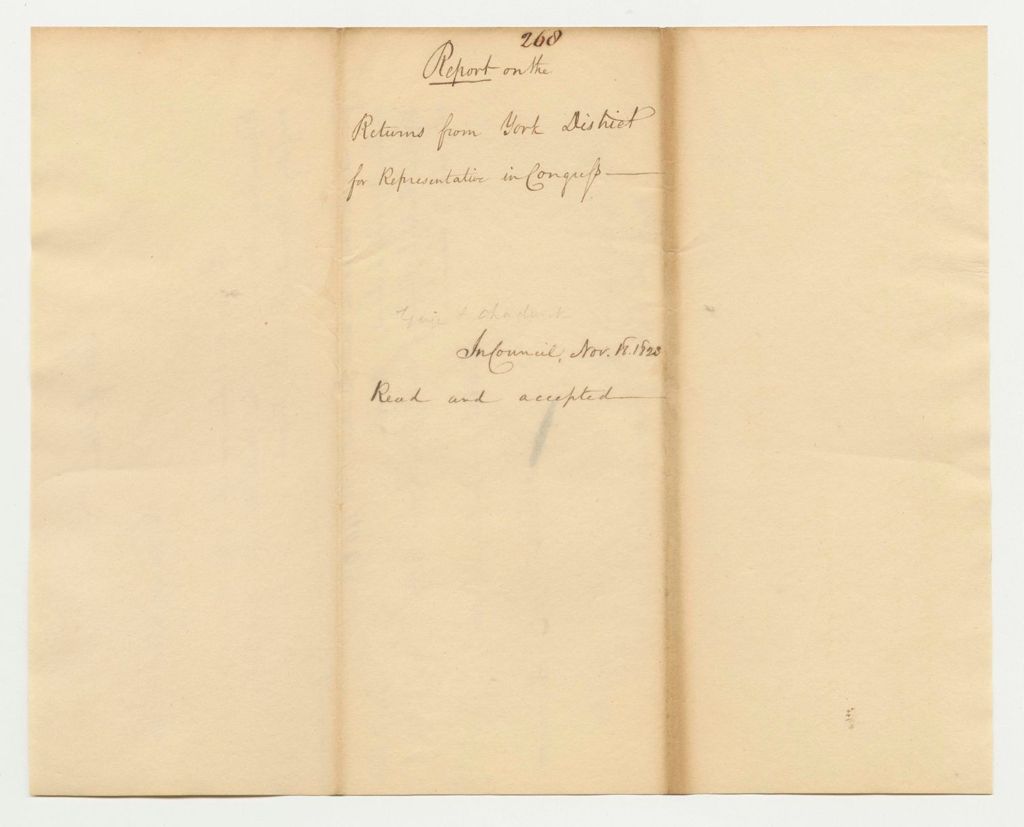 268
Report on the
Returns from York District
for Representative in Congress —
In Council, Nov. 18. 1820
Read and accepted —